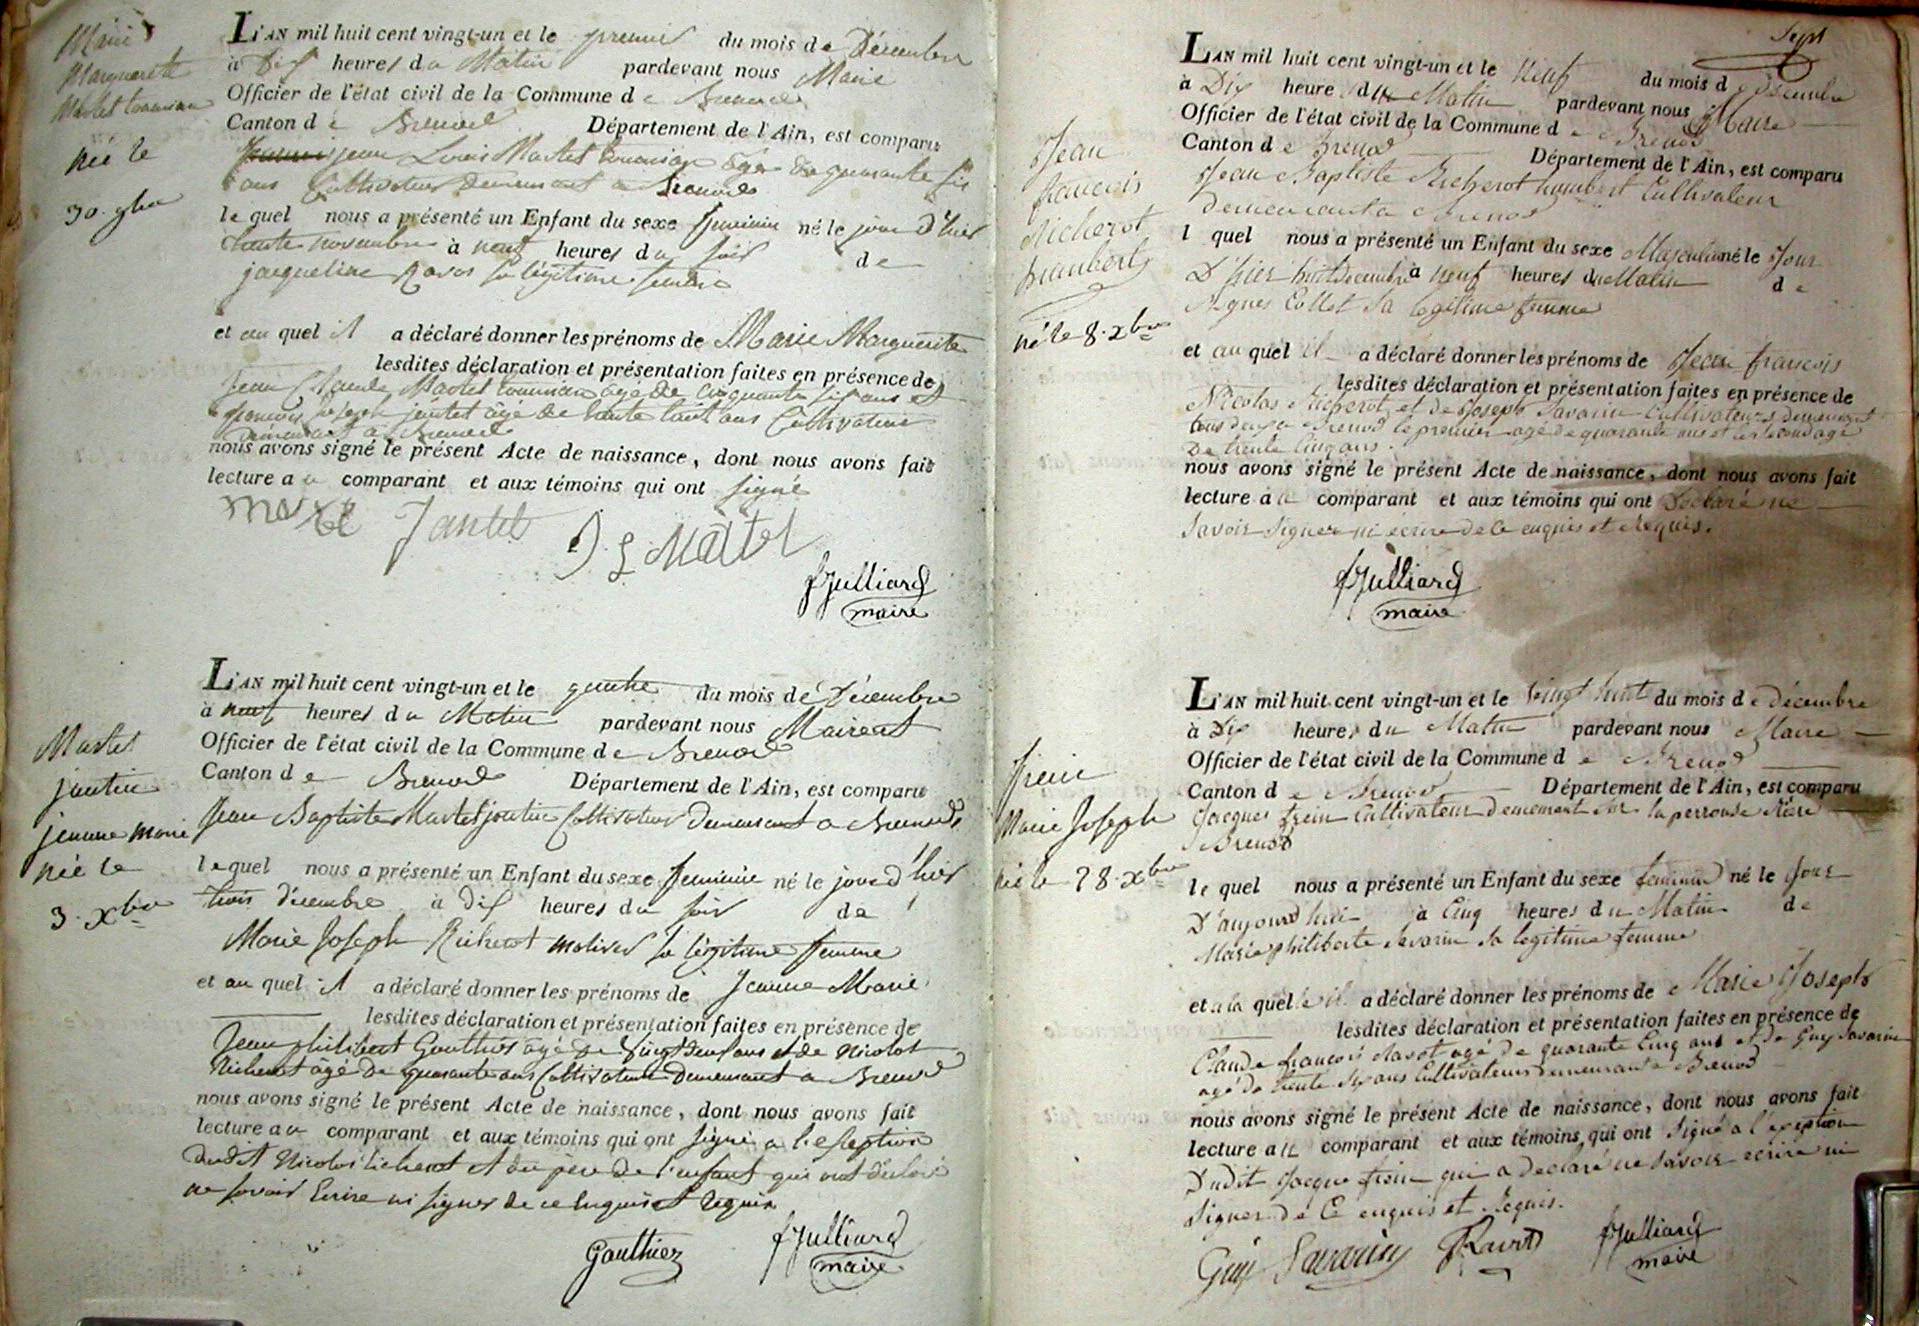 Marie
Marguerite
Martet tournian
née le
30. 9bre
L'AN mil huit cent vingt-un et le premier du mois de Décembre
à Dix heures du Matin pardevant nous Maire
Officier de l'état civil de la Commune de Brenod
Canton de Brenod Département de l'Ain, est comparu
jean Louis Martet tournian âgé de quarante six
ans Cultivateur Demeurant a Brenod
lequel nous a présenté un Enfant du sexe feminin né le jour d'hier
trente novembre à neuf heures du soir de
jacqueline Ravot sa légitime femme
et au quel il a déclaré donner les prénoms de Marie Marguerite
lesdites déclaration et présentation faites en présence de
Jean Claude Martet tournian âgé de cinquante six ans et
françois joseph jantet âgé de trente huit ans Cultivateurs
Demeurant à Brenod
nous avons signé le présent Acte de naissance, dont nous avons fait
lecture au comparant et aux témoins qui ont signé
Jantet J L Martel
fJulliard
maire
Martet
jantin
jeanne marie
née le
3. Xbre
L'AN mil huit cent vingt-un et le quatre du mois de Décembre
à neuf heures du Matin pardevant nous Maire et
Officier de l'état civil de la Commune de Brenod
Canton de Brenod Département de l'Ain, est comparu
Jean Baptiste Martet jantin Cultivateur Demeurant a Brenod
lequel nous a présenté un Enfant du sexe feminin né le jour d'hier
trois décembre à dix heures du soir de
Marie Joseph Richerot molives sa légitime femme
et au quel il a déclaré donner les prénoms de Jeanne Marie
lesdites déclaration et présentation faites en présence de
Jean philibert Gauthier âgé de vingt deux ans et de Nicolot
Richerot âgé de quarante ans Cultivateurs Demeurant a Brenod
nous avons signé le présent Acte de naissance, dont nous avons fait
lecture au comparant et aux témoins qui ont signé a l'exseption
dudit Nicolos Richerot et du père de l'enfant qui ont déclaré
ne savoir Ecrire ni signer de ce Enquis et requis
Gauthiez fJulliard
maire
Sept
Jean
françois
Richerot
humbert
né le 8. Xbre
L'AN mil huit cent vingt-un et le Neuf du mois de décembre
à Dix heure du Matin pardevant nous Maire
Officier de l'état civil de la Commune de Brenod
Canton de Brenod Département de l'Ain, est comparu
Jean Baptiste Richerot humbert Cultivateur
demeurant a Brenod
lquel nous a présenté un Enfant du sexe Masculin né le Jour
D'hier huit Decembre à neuf heures du Matin de
Agnes Collet Sa legitime femme
et au quel il a déclaré donner les prénoms de Jean françois
lesdites déclaration et présentation faites en présence de
Nicolas Richerot et de Joseph Savarin Cultivateurs demeurant
tous deux a Brenod le premier agé de quarante ans et le second agé
De trente Cinq ans.
nous avons signé le présent Acte de naissance, dont nous avons fait
lecture au comparant et aux témoins qui ont Déclaré ne
Savoir Signer ni ecrire de Ce enquis et Requis.
fJulliard
maire
frein
Marie Joseph
née le 28. Xbre
L'AN mil huit cent vingt-un et le vingt huit du mois de décembre
à Dix heures du Matin pardevant nous Maire
Officier de l'état civil de la Commune de Brenod
Canton de Brenod Département de l'Ain, est comparu
Jacques frein Cultivateur demeurant sur la perrouse Rière
Brenod
lequel nous a présenté un Enfant du sexe feminin né le Jour
D'aujourd'hui à Cinq heures du Matin de
Marie philiberte Savarin Sa legitime femme
et a la quelle il a déclaré donner les prénoms de Marie Joseph
lesdites déclaration et présentation faites en présence de
Claude françois Ravot agé de quarante Cinq ans et de Guy Savarin
agé de trente Six ans Cultivateurs demeurant a Brenod
nous avons signé le présent Acte de naissance, dont nous avons fait
lecture au comparant et aux témoins qui ont signé a l'exception
Dudit Jacque frein qui a declaré ne Savoir ecrire ni
Signer de Ce enquis et Requis.
Guy Savarin Ravot fJulliard
maire